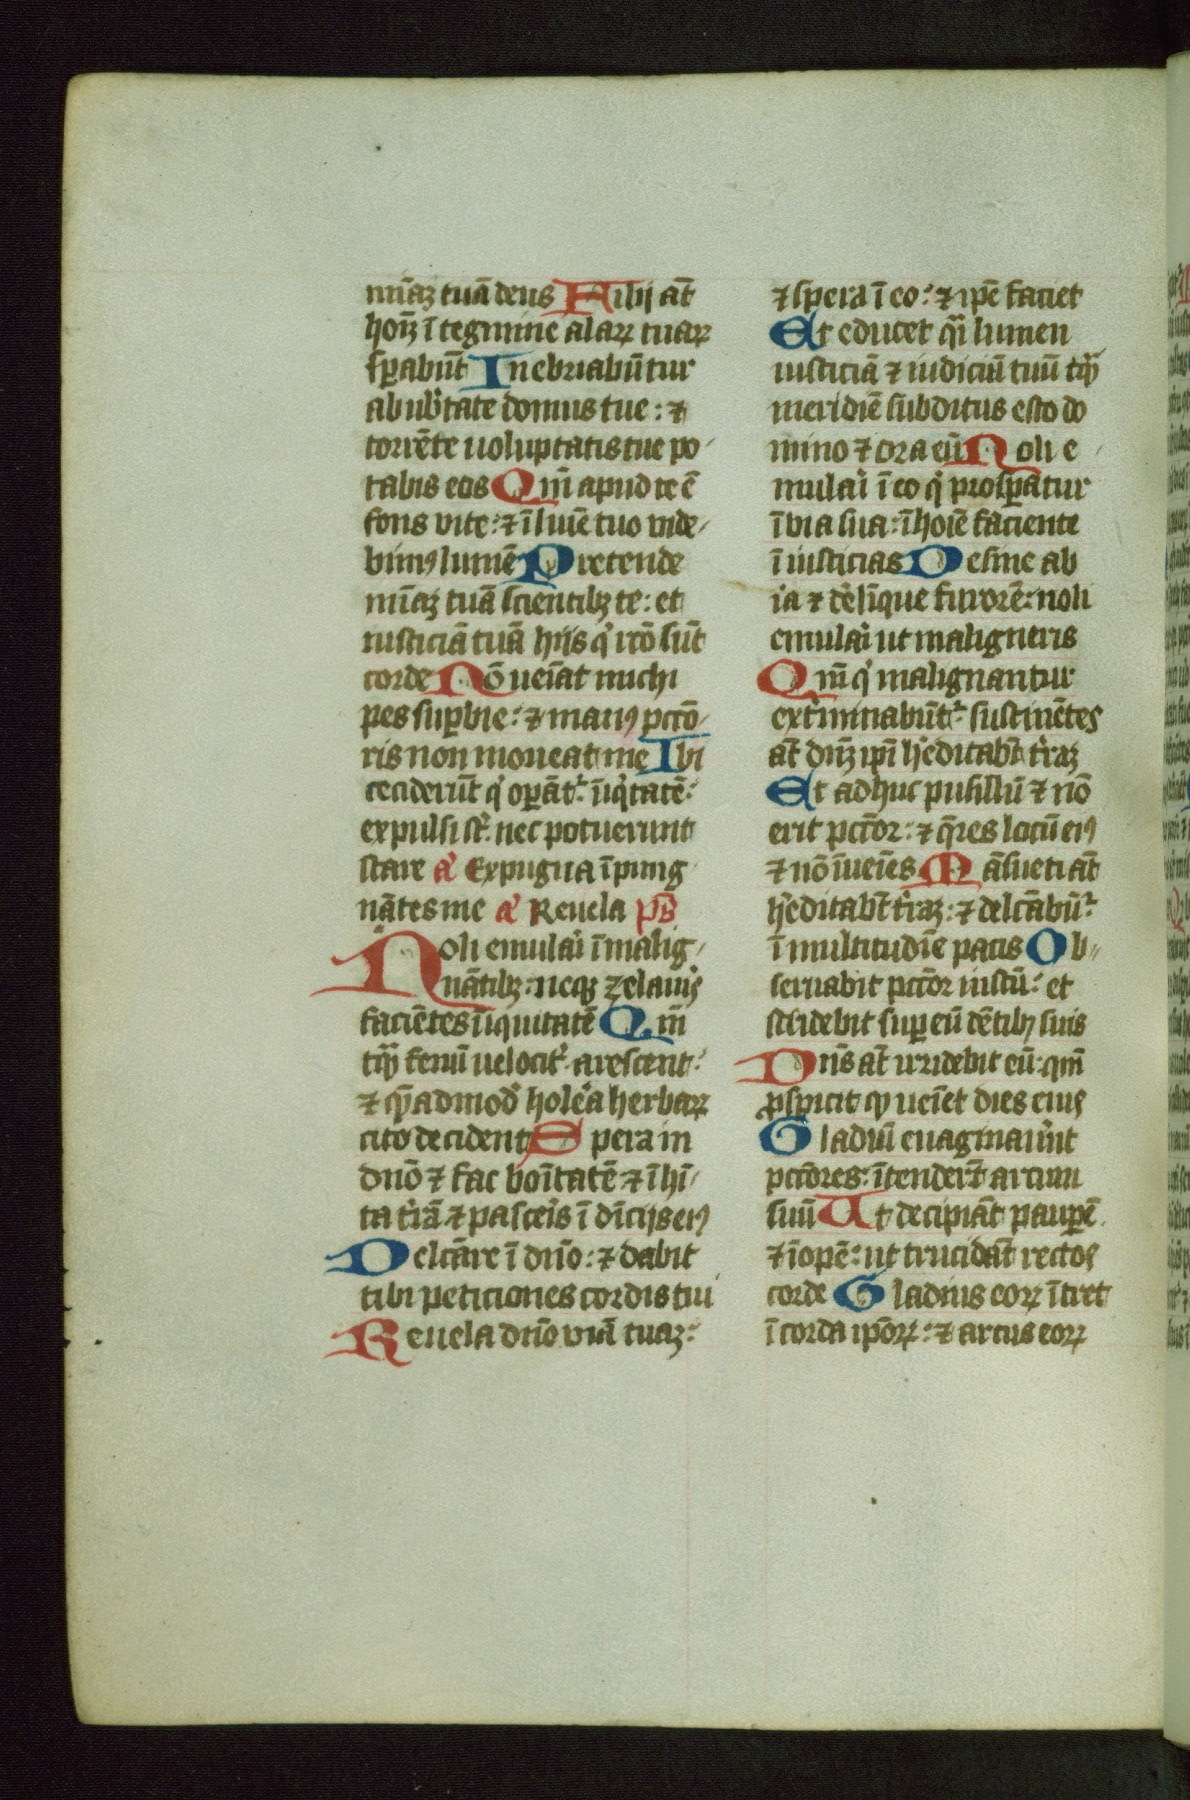 mīaꝫ tuā deus Filij at̄
hoīꝫ ī tegmine alaꝝ tuaꝝ
sꝑabūt Inebriabūtur
ab ub̓tate domus tue : ⁊
torrēte uoluptatis tue po
tabis eos Qm̄ apud te ē
fons vite : ⁊ ī luīe tuo vide
bimꝰ lumē Pretende
mīaꝫ tuā scientibꝫ te : et
iusticiā tuā hijs q̓ rc̄o sūt
corde Nō ueīat michi
pes suꝑbie : ⁊ manꝰ pcc̄o
ris non moueat me Ibi
ceciderūt q̓ oꝑāt᷑ īiq̓tatē :
expulsi st̄ nec potuerunt
stare a̓ Expugna īpung
nātes me a̓ Reuela ps̄
Noli emulaı̓ ī malig
nātibꝫ : neqꝫ zelaueı̓s
faciētes īiquitatē Qm̄
tꝙ̄ fenū uelocit̓ arescent :
⁊ q̄ꝫadmod̓ hol̓ea herbaꝝ
cito decident Spera in
dn̄o ⁊ fac boītatē ⁊ īhı̄
ta t̓rā ⁊ pasceı̓s ī dīcijs eiꝰ
Delc̄are ī dn̄o : ⁊ dabit
tibi peticiones cordis tui
Reuela dn̄o viā tuaꝫ :
⁊ spera ī eo : ⁊ ip̄e faciet
Et educet q̄i lumen
iusticiā ⁊ iudiciū tuū tꝙ̄
meridiē subditus esto do
mino ⁊ ora eū Noli e
mulaı̓ ī eo q̓ prosꝑatur
ī via sua : ī hoīe faciente
ī iusticias Desine ab
ira ⁊ d̓elīque furorē : noli
emulaı̓ ut maligneris
Qm̄ q̓ malignantur
ext̓minabūt᷑ : sustinētes
at̄ dn̄ꝫ ip̄i h̓editabūt t̓raꝫ
Et adhuc pusillū ⁊ nō
erit pcc̄or : ⁊ q̄res locū eiꝰ
⁊ nō īueīes Māsueti at̄
h̓editabūt t̓raꝫ : ⁊ delc̄abūt᷑
ī multitudīe pacis Ob
seruabit pcc̄or iustū : et
stridebit suꝑ eū dētibꝫ suis
Dn̄s at̄ irridebit eū : qm̄
ꝓspicit ꝙ ueīet dies eius
Gladiū euaginaueı̓nt
pcc̄ores : ītenderūt arcum
suū Ut decipiāt pauꝑē
⁊ īopē : ut trucidēt rectos
corde Gladius eoꝝ ītret
ī corda ip̄oꝝ : ⁊ arcus eoꝝ